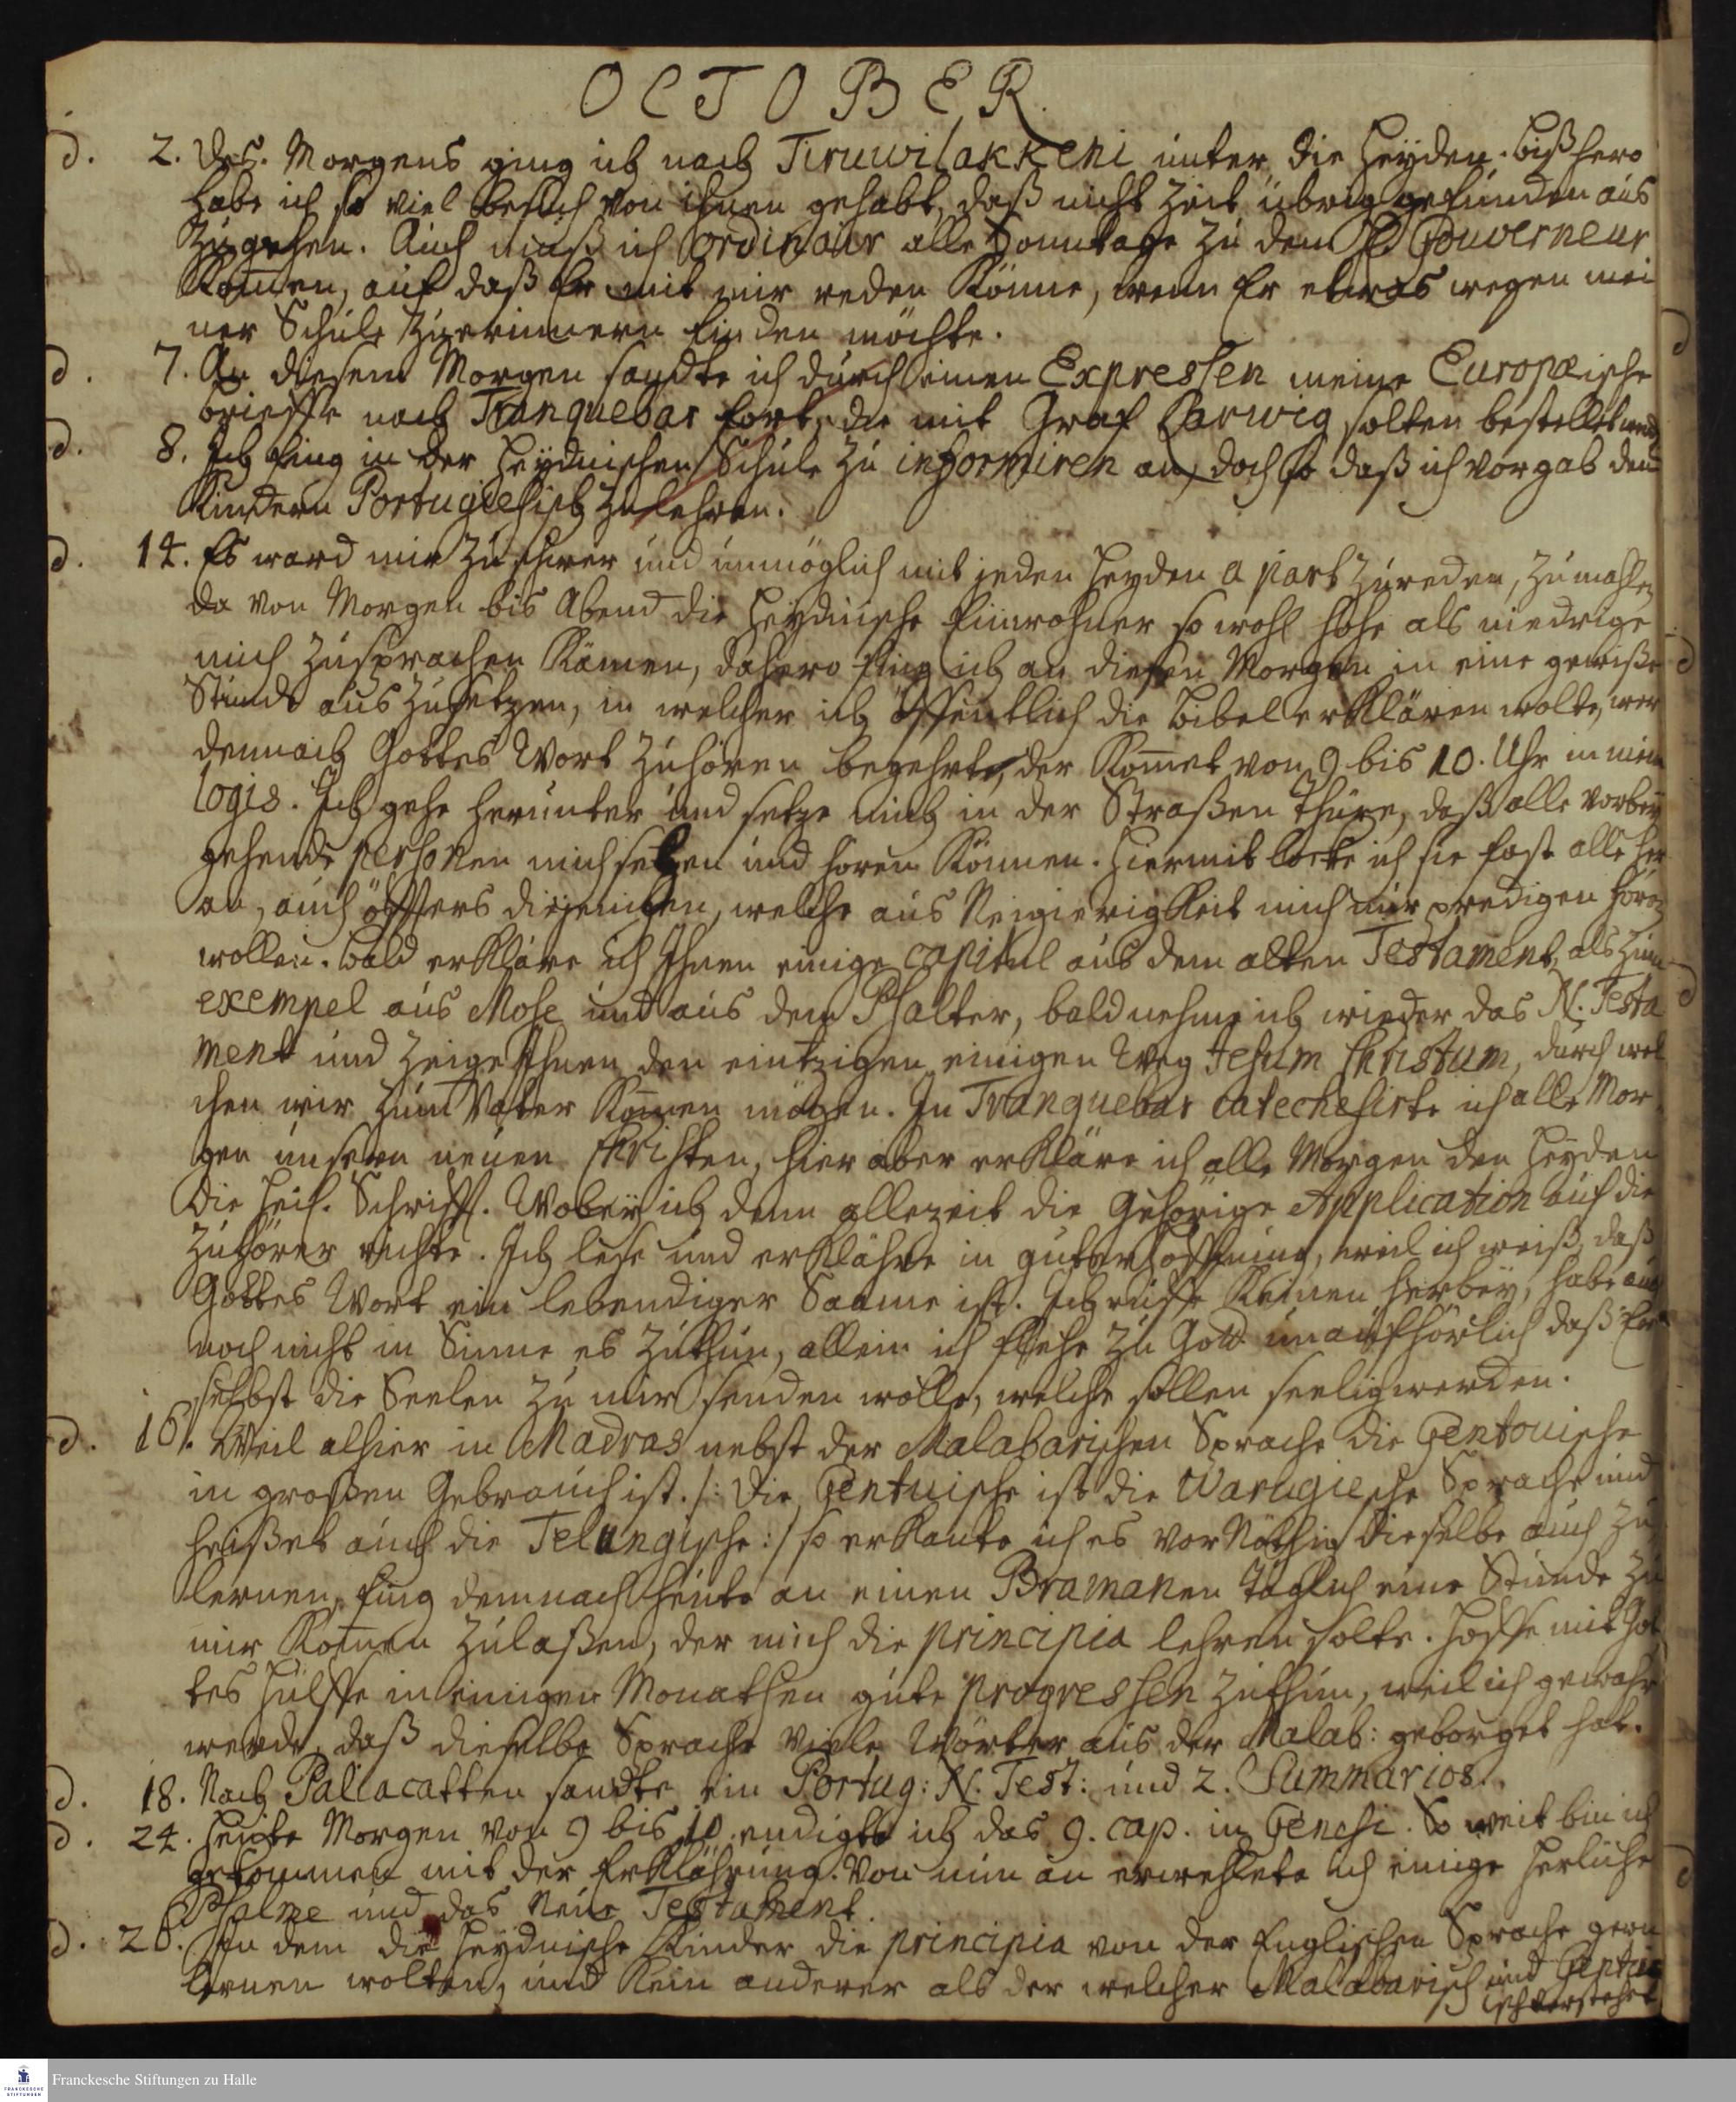 OCTOBER.
d. 2. Des Morgens ging ich nach Tiruwilakkeni unter die Heyden. Bißhero
habe ich so viel besuch von ihnen gehabt, daß nicht Zeit übrig gefunden aus
Zugehen. Auch muß ich ordinair alle Sonntage zu dem H Gouverneur
Kom̄en, auf daß Er mit mir reden Könne, wenn Er etwas wegen mei
ner Schule Zuerinnern finden möchte.
d. 7. An diesem Morgen sandte ich durch einen Expressen meine Europæische
brieffe nach Tranquebar fort, die mit Graf Carwig solten bestellet werd
d. 8. Ich fing in der Heydnischen Schule zu informiren an, doch so daß ich vorgab den
Kindern Portugiesisch zu lehren.
d. 14. Es ward mir zu schwer und unmöglich mit jeden Heyden a part Zureden, Zumahlen
da von Morgen bis Abend die Heydnische Einwohner so wohl hohe als niedrige
mich Zusprachen Kämen, dahero fing ich an diesen Morgen in eine gewiße
Stunde auszusetzen, in welcher ich öffentlich die Bibel erklären wolte, wer
demnach Gottes Wort Zuhören begehrte, der Kom̄et von 9 bis 10. Uhr in mein
logis. Ich gehe herunter und setze mich in der Straßen Thüre, daß alle vorbey
gehende personen mich sehen und horen Können. Hiermit locke ich sie fast alle her
an, auch öffters diejenigen, welche aus Neigierigkeit mich nur predigen hören
wollen. Bald erkläre ich Ihnen einige capitul aus dem alten Testament, als Zum
exempel aus Mose und aus dem Psalter, bald nehme ich wieder das N. Testa
ment und Zeige Ihnen den eintzigen einigen Weg Jesum Christum, durch wel
chen wir zum Vater Kom̄en mögen. In Tranquebar catechesirte ich alle Mor
gen unsern neuen Christen, hier aber erkläre ich alle Morgen den Heyden
die Heil. Schrifft. Wobey ich denn allezeit die Gehörige Application auf die
Zuhörer richte. Ich lese und erklähre in guter hoffnung, weil ich weiß, daß
Gottes Wort ein lebendiger Saame ist. Ich ruffe Keinen herbey, habe auch
noch nicht in Sinne es Zuthun, allein ich flehe zu Gott unaufhörlich daß Er
selbst die Seelen zu mir senden wolle, welche sollen seelig werden.
d. 16. Weil alhier in Madras nebst der Malabarischen Sprache die Gentouische
in großen Gebrauch ist. /: Die Gentuische ist die Warugische Sprache und
heißet auch die Telungische :/ so erkante ich es vor Nöthig dieselbe auch zu
lernen, fing demnach heute an einen Bramanen täglich eine Stunde zu
mir Kom̄en Zulaßen, der mich die principia lehren solte. Hoffe mit Got
tes Hülffe in einigen Monathen gute progressen Zuthun, weil ich gewahr
werde, daß dieselbe Sprache viele Wörter aus der Malab: geborget hat.
d. 18. Nach Paliacatten sandte ein Portug: N. Test: und 2. Summarios.
d. 24. Heute Morgen von 9 bis 10 endigte ich das 9. cap. in Genesi. So weit bin ich
gekommen mit der Erklährung. Von nun an erwehlete ich einige herliche
Psalme und das Neue Testament.
d. 26. In dem die Heydnische Kinder die principia von der Englischen Sprache gern
lernen wolten, und Kein anderer als der welcher Malabarisch und Gentui
isch verstehet
Franckesche Stiftungen zu Halle